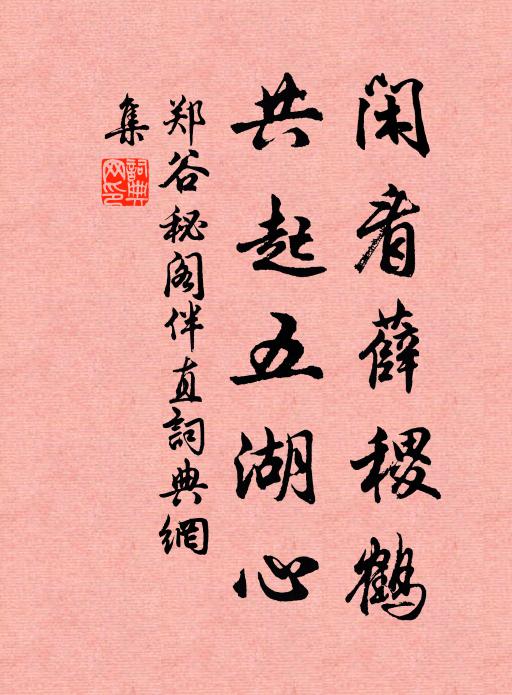 闲看薛稷鹤
共起五湖心
郑谷秘阁伴直詞典網
集
詞典
网印